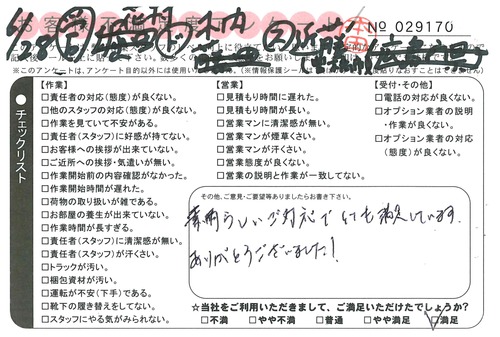 № 029170
※このアンケートは、アンケート目的以外には使用いたしません。
チェックリスト
【作業】
□責任者の対応(態度)が良くない。
□他のスタッフの対応(態度)が良くない。
□作業を見ていて不安がある。
□責任者(スタッフ)に好感が持てない。
□お客様への挨拶が出来ていない。
□ご近所への挨拶・気遣いが無い。
□作業開始前の内容確認がなかった。
□作業開始時間に遅れた。
□荷物の取り扱いが雑である。
□お部屋の養生が出来ていない。
□作業時間が長すぎる。
□責任者(スタッフ)に清潔感が無い。
□責任者(スタッフ)が汗くさい。
□トラックが汚い。
□梱包資材が汚い。
□運転が不安(下手)である。
□靴下の履き替えをしてない。
□スタッフにやる気がみられない。
【営業】
□見積もり時間に遅れた。
□見積もり時間が長い。
□営業マンに清潔感が無い。
□営業マンが煙草くさい。
□営業マンが汗くさい。
□営業態度が良くない。
□営業の説明と作業が一致してない。
【受付・その他】
□電話の対応が良くない。
□オプション業者の説明
・作業が良くない。
□オプション業者の対応
(態度)が良くない。
その他、ご意見・ご要望等ありましたらお書き下さい。
素晴らしいご対応でとても満足しています。
ありがとうございました!
☆当社をご利用いただきまして、ご満足いただけたでしょうか?
□不満 □やや不満 □普通 □やや満足 □満足